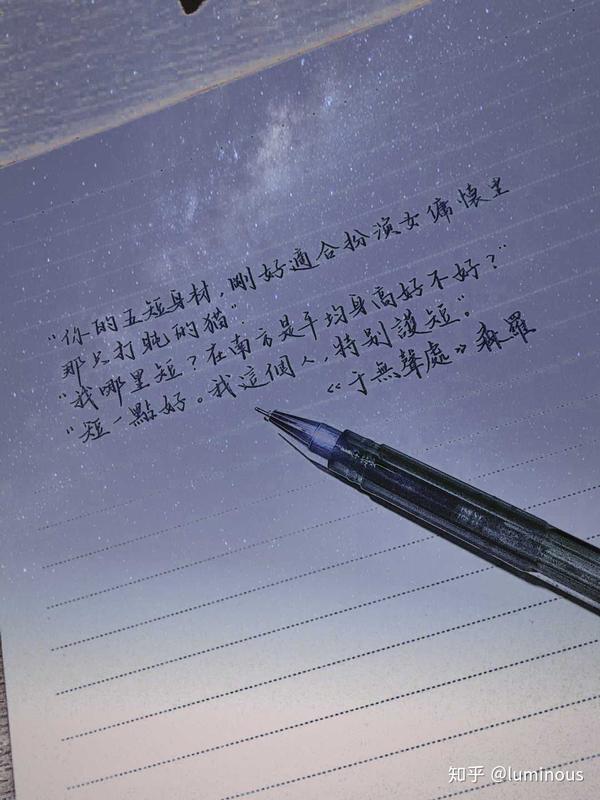 “你的五短身材，剛好適合扮演女傭懷里
那只打盹的猫”。
“我哪里短？在南方是平均身高好不好？”
“短一點好。我這個人，特别護短”。
《于無聲處》森羅
知乎 @luminous